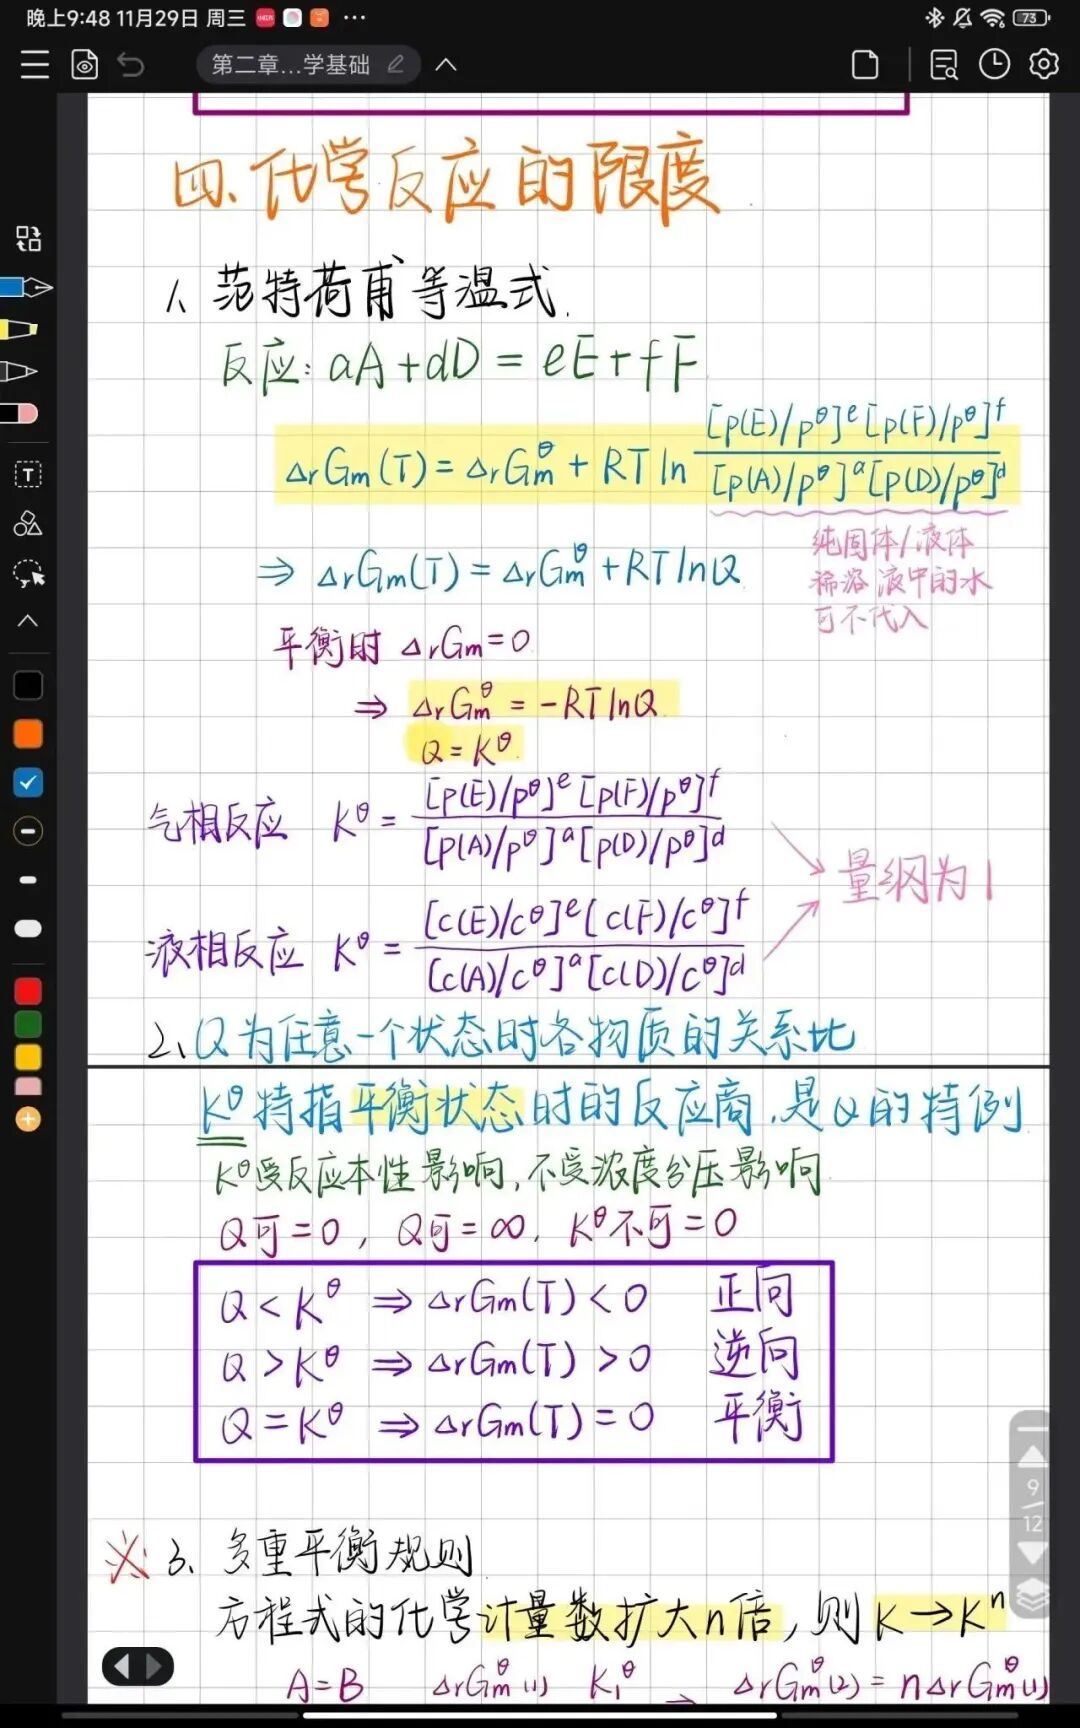 晚上9:48 11月29日 周三 ··· 73
第二章...学基础
四、化学反应的限度
1、范特荷甫等温式.
反应: aA+dD = eE+fF
ΔrGm(T) = ΔrGm^θ + RT ln [p(E)/p^θ]^e [p(F)/p^θ]^f / [p(A)/p^θ]^a [p(D)/p^θ]^d
纯固体/液体
稀溶液中的水
可不代入
⇒ ΔrGm(T) = ΔrGm^θ + RT lnQ
平衡时 ΔrGm = 0
⇒ ΔrGm^θ = -RT lnQ
Q = K^θ
气相反应 K^θ = [p(E)/p^θ]^e [p(F)/p^θ]^f / [p(A)/p^θ]^a [p(D)/p^θ]^d
量纲为1
液相反应 K^θ = [c(E)/c^θ]^e [c(F)/c^θ]^f / [c(A)/c^θ]^a [c(D)/c^θ]^d
2、Q为任意一个状态时各物质的关系比
K^θ特指平衡状态时的反应商,是Q的特例
K^θ受反应本性影响,不受浓度分压影响
Q可=0, Q可=∞, K^θ不可=0
Q < K^θ ⇒ ΔrGm(T) < 0 正向
Q > K^θ ⇒ ΔrGm(T) > 0 逆向
Q = K^θ ⇒ ΔrGm(T) = 0 平衡
9
12
※ 3、多重平衡规则
方程式的化学计量数扩大n倍,则K→K^n
A=B ΔrGm^θ(1) K1^θ → ΔrGm^θ(2) = nΔrGm^θ(1)
T